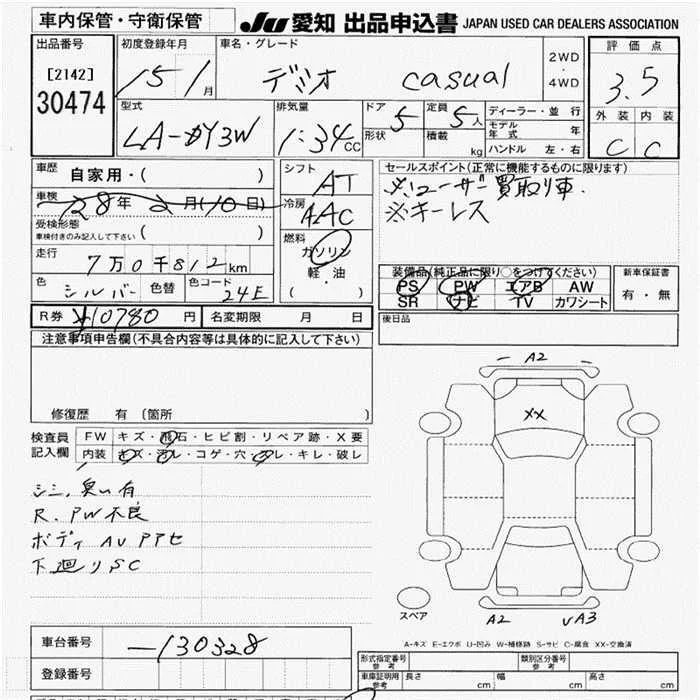 車内保管・守衛保管
JU 愛知 出品申込書 JAPAN USED CAR DEALERS ASSOCIATION
出品番号 初度登録年月 車名・グレード 2WD 評価点
[2142] 15 1 月 デミオ casual ・ 3.5
30474 4WD
型式 排気量 ドア 5 定員 5人 ディーラー・並 行 外装 内装
LA-DY3W 1:34 CC 形状 積載 kg モデル年式 年 C C
ハンドル 左・右
車歴 自家用・( ) シフト AT セールスポイント(正常に機能するものに限ります)
車検 28年 2月(10日) 冷房 AAC ※ユーザー買取り車.
受検形態 ( ) ※キーレス
車検付きのみ記入して下さい
走行 7万0千812km 燃料 ガソリン
軽・油
( ・ )
色 シルバー 色替 色コード 24E
装備品(純正品に限り○をつけてください) 新車保証書
PS PW エアB AW 有・無
SR ナビ TV カワシート
R券 ¥10780 円 名変期限 月 日 後日品
注意事項申告欄(不具合内容等は具体的に記入して下さい)
修復歴 有 〔箇所 〕
検査員 FW キズ・飛石・ヒビ割・リペア跡・X要
記入欄 内装 キズ・汚レ・コゲ・穴・スレ・キレ・破レ
シミ,臭い有
R.PW不良
ボディ AU PPセ
下廻りSC
A2
XX
スペア
A2 A3
A-キズ E-エクボ U-凹み W-補修跡 S-サビ C-腐食 XX-交換済
車台番号 -130328
登録番号
形式指定番号 参考 類別区分番号 参考
車庫証明用 参考 長さ cm 幅 cm 高さ cm